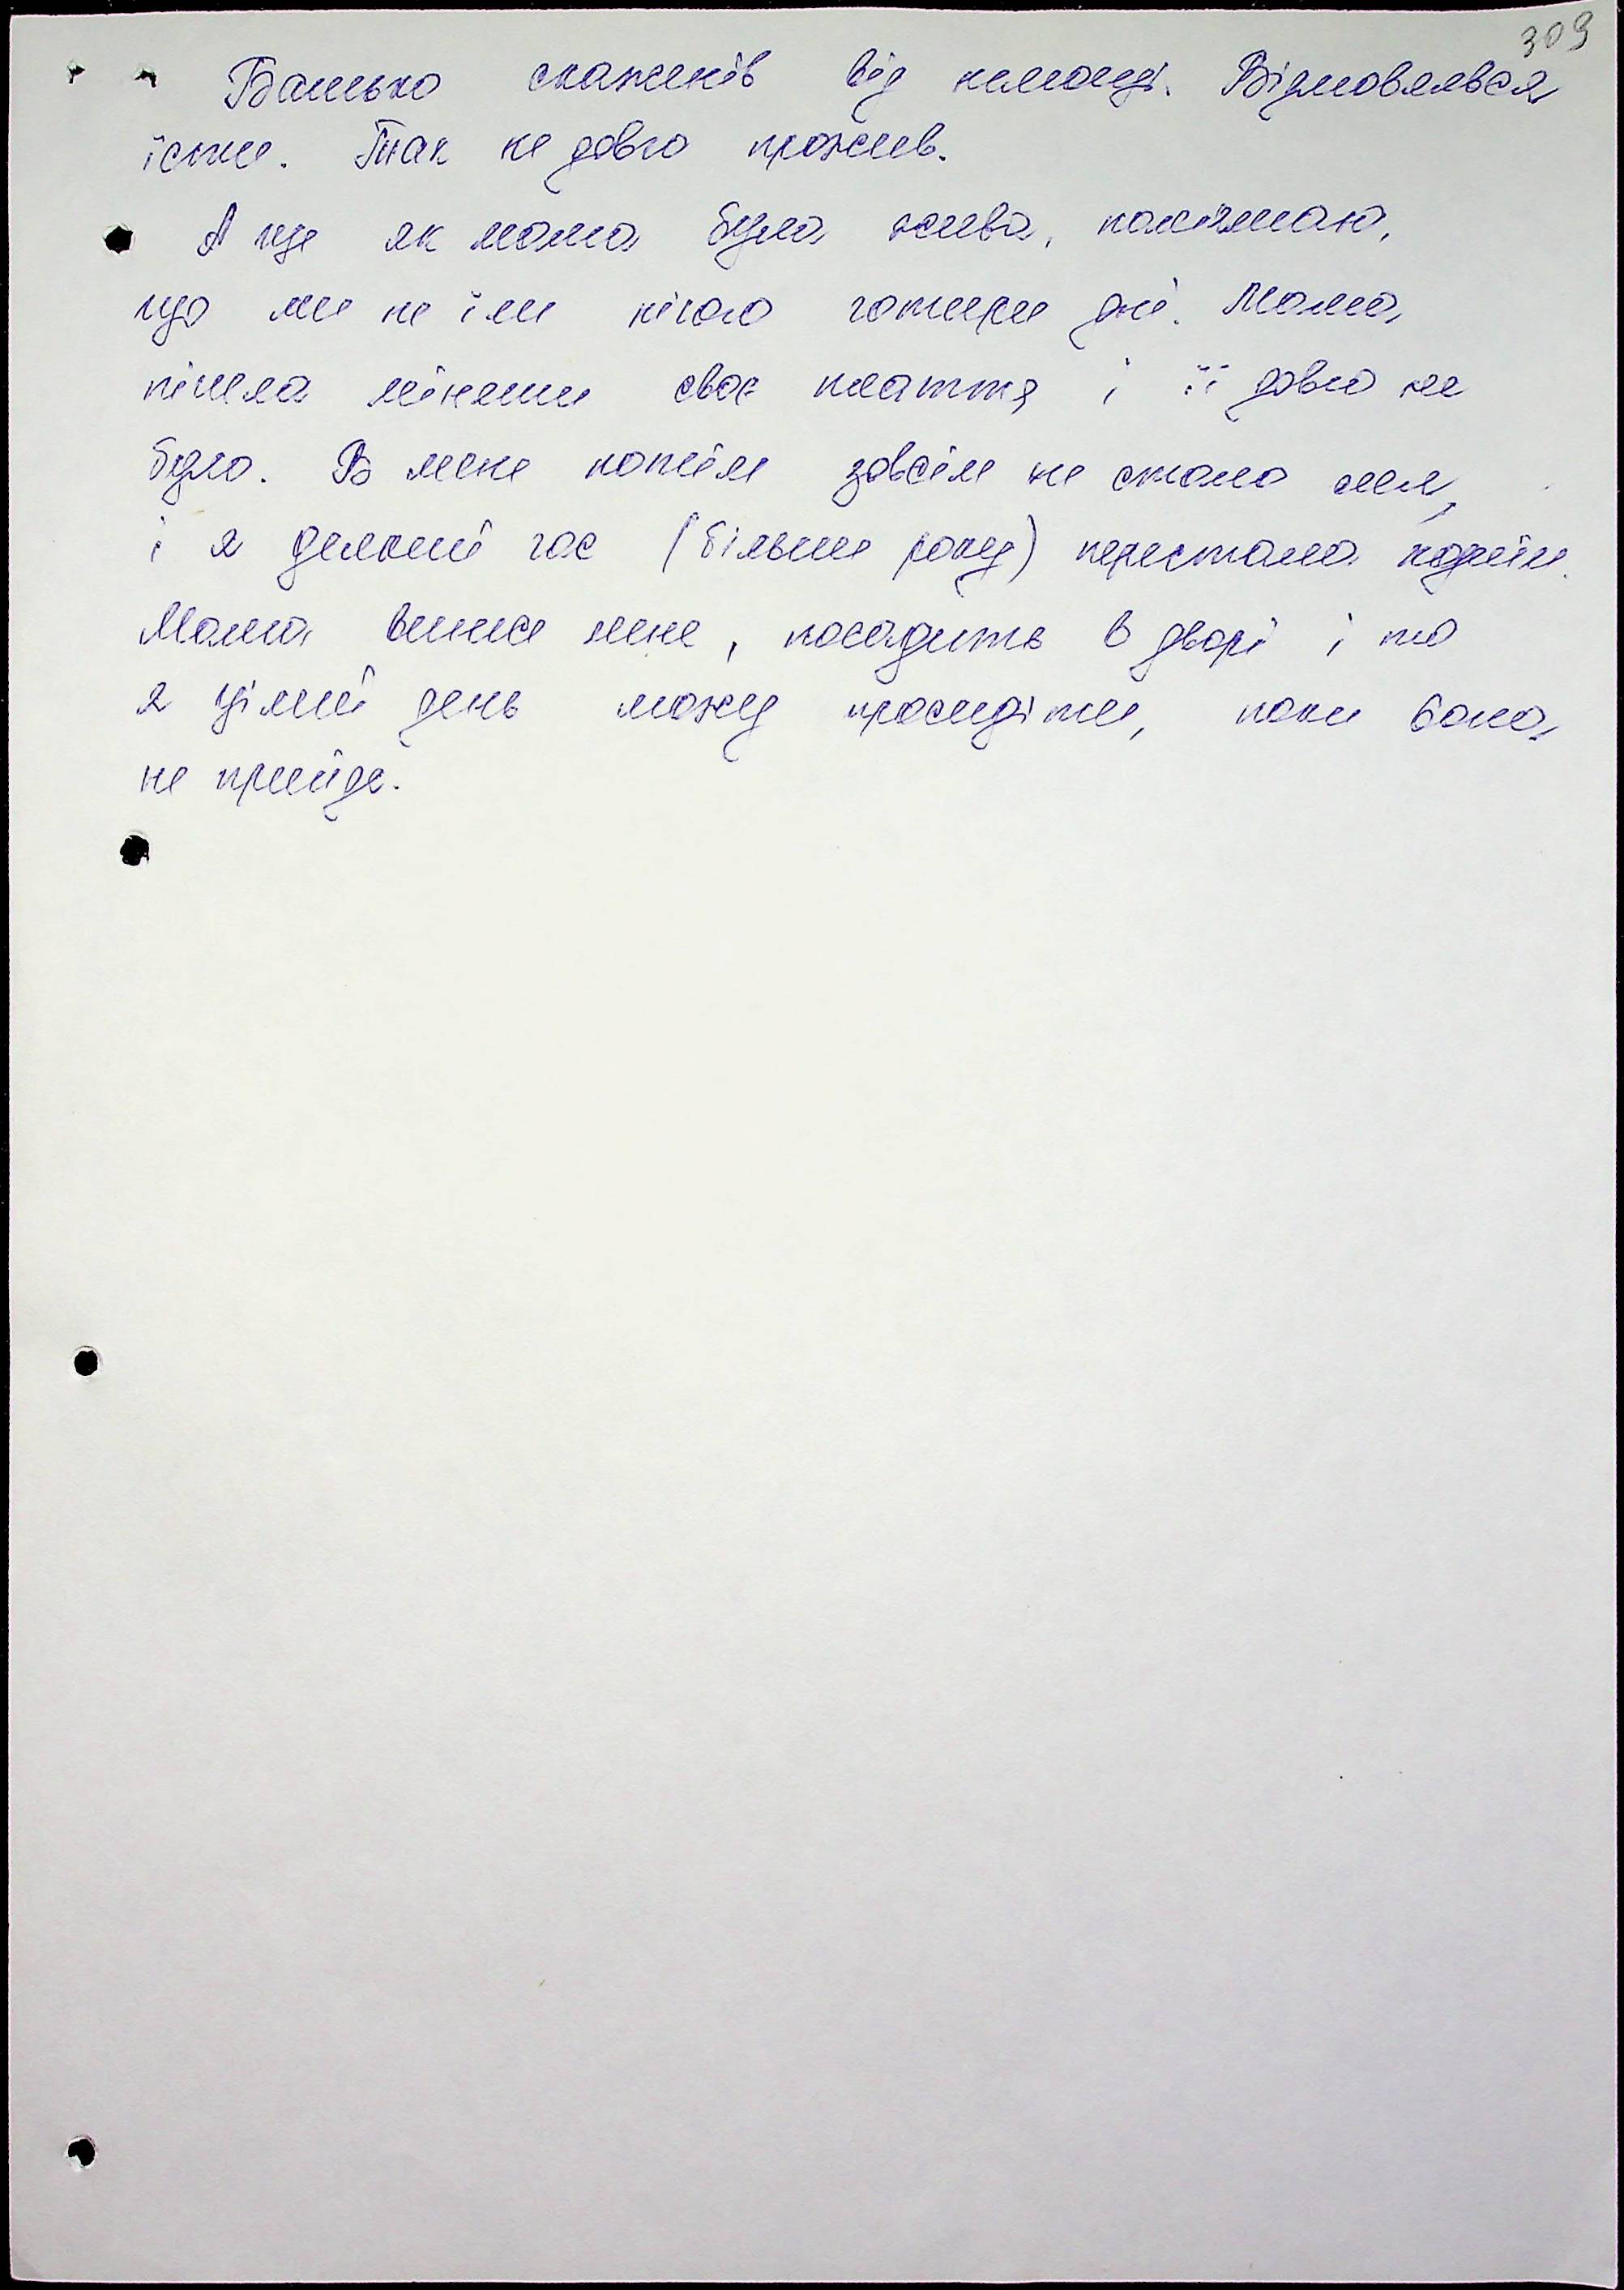 309
Батько скаженів від немощі. Відмовлявся
їсти. Так не довго прожив.
А ще як мама була жива, пам'ятаю,
що ми не їли нічого чотири дні. Мама
пішла міняти своє плаття і її довго не
було. В мене потім зовсім не стало сил,
і я деякий час (більше року) перестала ходити.
Мама винисе мене, посадить в дворі і то
я цілий день можу просидіти, поки вона
не прийде.